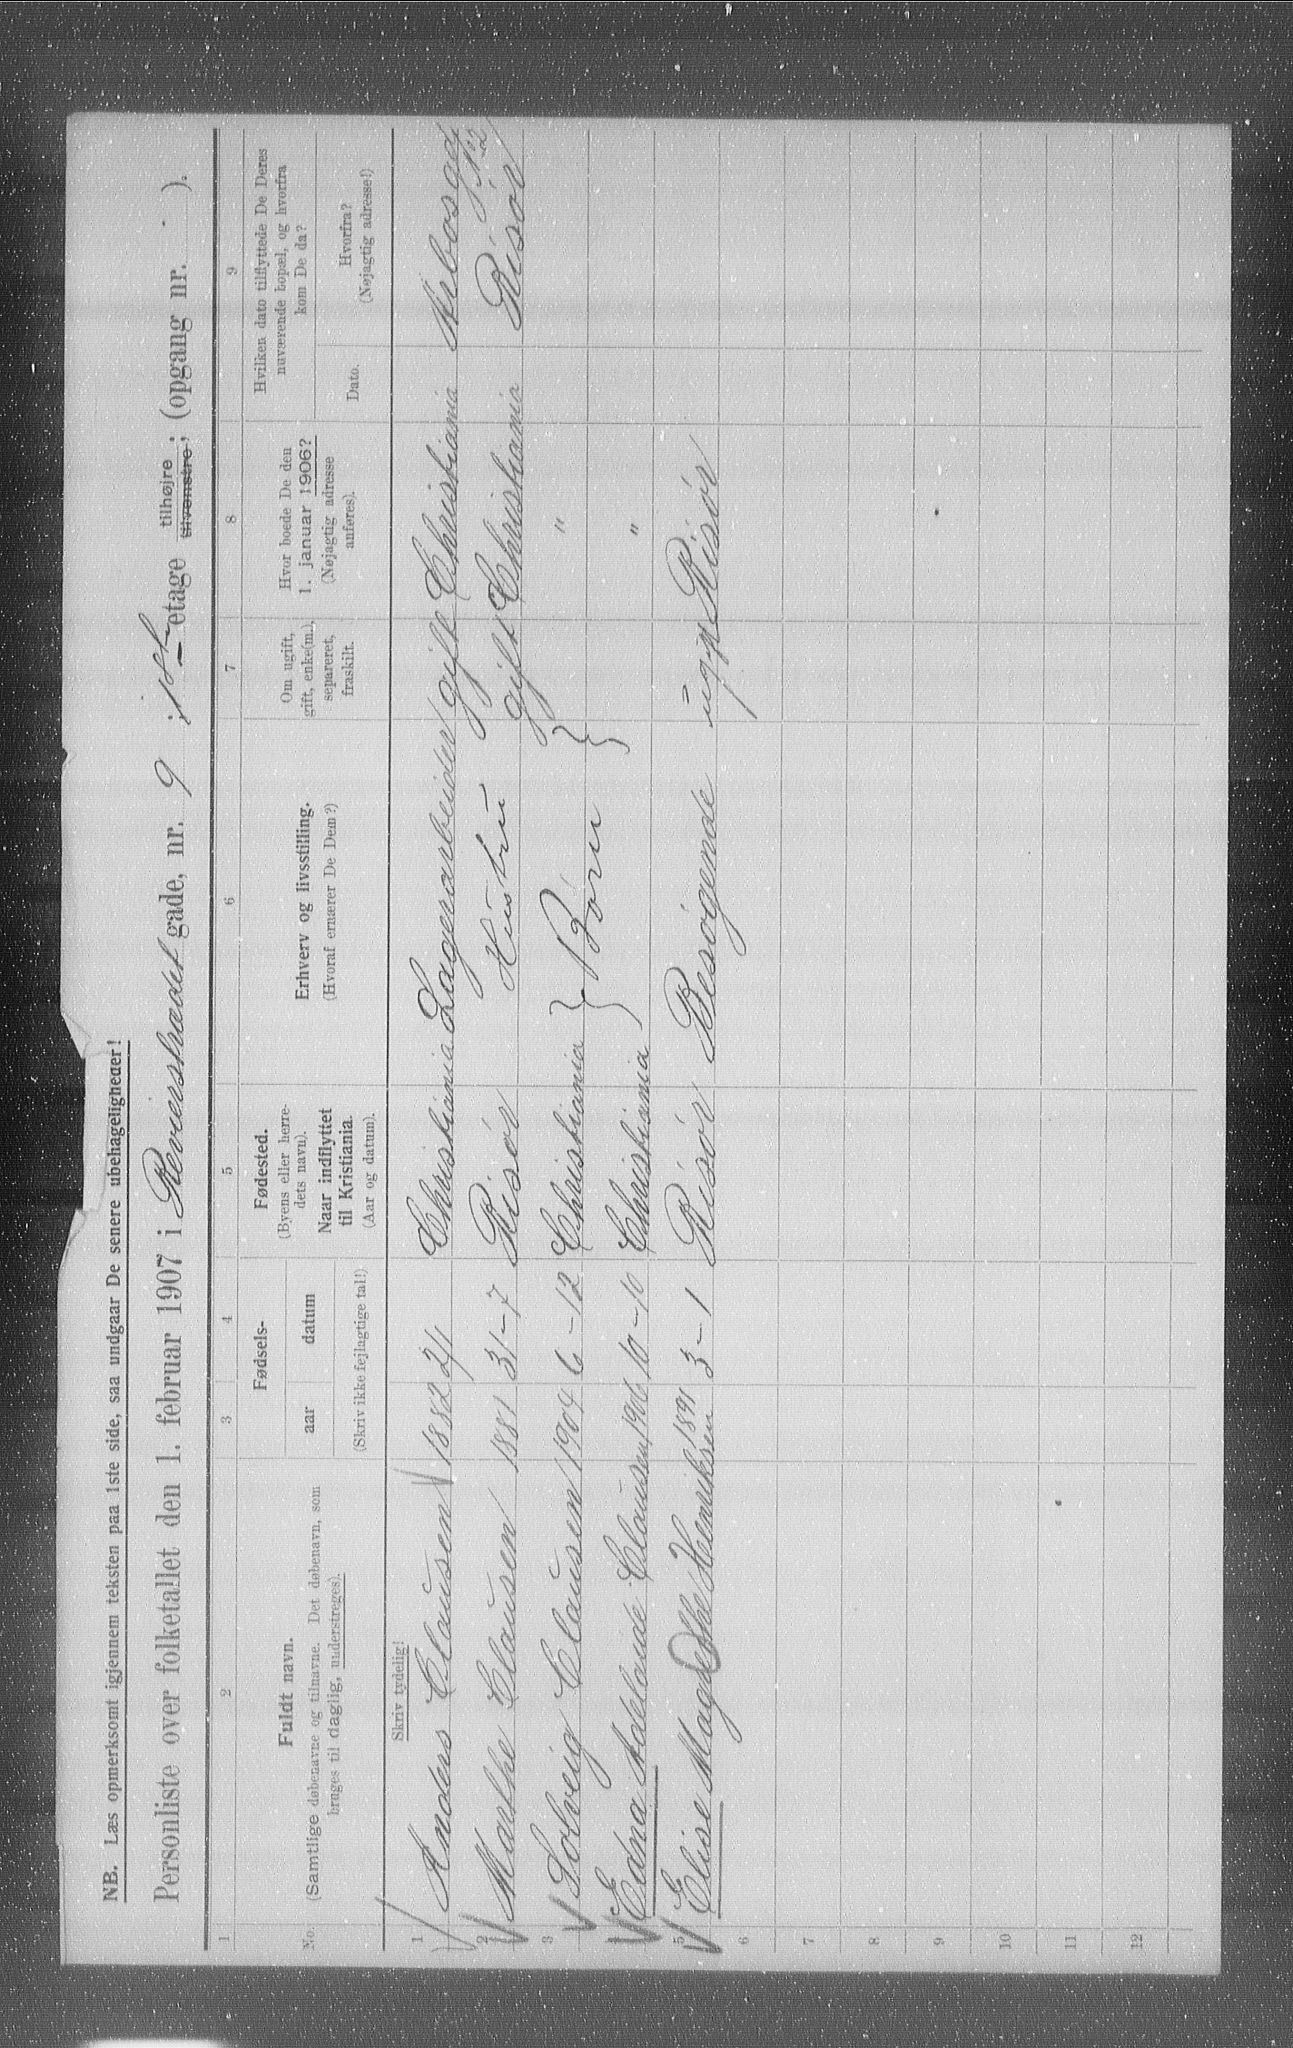 NB. Læs opmerksomt igjennem teksten paa 1ste side, saa undgaar De senere ubehageligheder!
Personliste over folketallet den 1. februar 1907 i Revierstrædet gade, nr. 9 ; 1ste etage tilhøjre tilvenstre; (opgang nr. ).
1 2 3 4 5 6 7 8 9
No. Fuldt navn. (Samtlige døbenavne og tilnavne. Det døbenavn, som bruges til daglig, understreges).
Fødsels- aar datum (Skriv ikke fejlagtige tal!)
Fødested. (Byens eller herredets navn). Naar indflyttet til Kristiania. (Aar og datum).
Erhverv og livsstilling. (Hvoraf ernærer De Dem?)
Om ugift, gift, enke(m.), separeret, fraskilt.
Hvor boede De den 1. januar 1906? (Nøjagtig adresse anføres).
Hvilken dato tilflyttede De Deres nuværende bopæl, og hvorfra kom De da?
Dato. Hvorfra? (Nøjagtig adresse!)
Skriv tydelig!
1 Anders Clausen 1882 2/1 Christiania Lagerarbeider gift Christiania
2 Marthe Clausen 1881 31-7 Risør Hustru gift Christiania Risør
3 Solveig Clausen 1904 6-12 Christiania } Børn } "
4 Edna Adelaide Clausen 1906 10-10 Christiania "
5 Elise Magdthe Henriksen 1891 3-1 Risør Besøgende ugift Risør
6
7
8
9
10
11
12